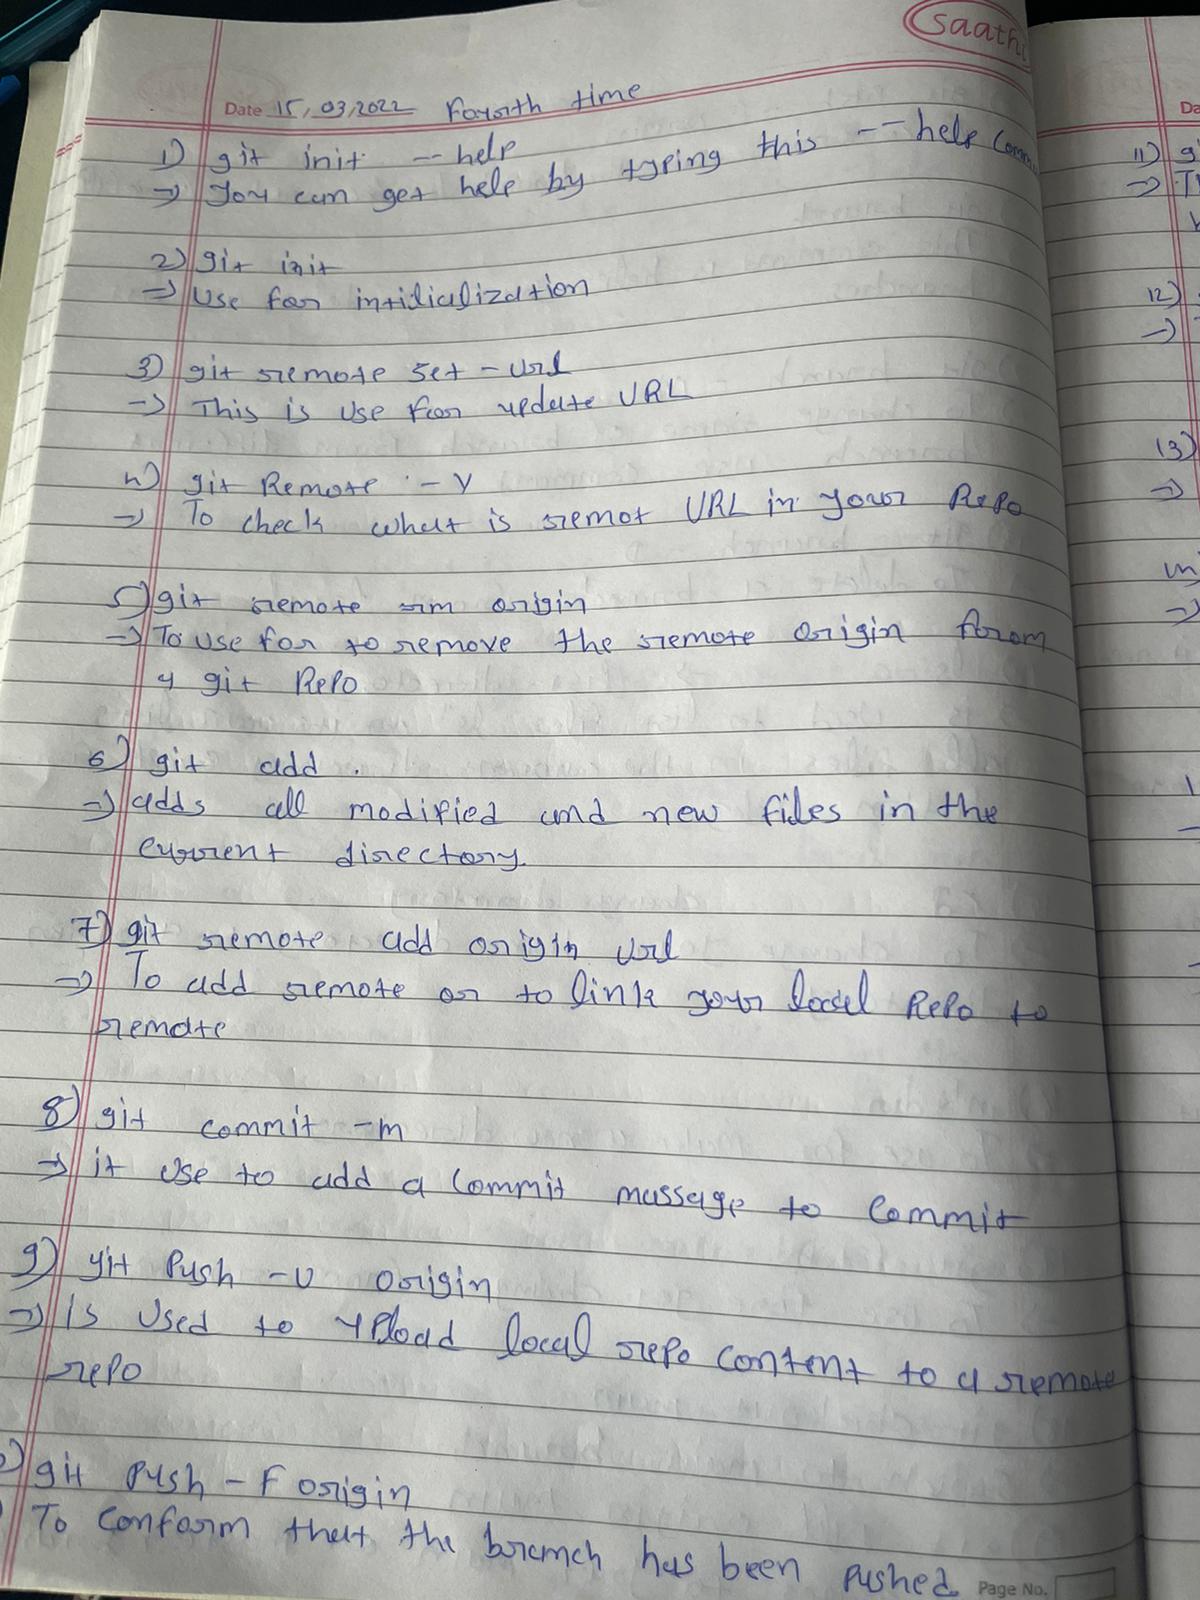 Saathi
Date 15,03,2022 Foursth time
1) git init --help
=> You can get help by typing this --help Comm
2) git init
=> Use for intilialization
3) git remote set -url
=> This is use for update URL
4) git Remote -v
=> To check what is remot URL in your Repo
5) git remote rm origin
=> To use for to remove the remote origin from
a git Repo
6) git add .
=> adds all modified and new files in the
current directory.
7) git remote add origin url
=> To add remote or to link your local Repo to
remote
8) git commit -m
=> it use to add a Commit massage to Commit
9) git Push -u origin
=> is used to upload local repo content to a remote
repo
0) git Push -F origin
To conform that the branch has been pushed
Page No.
Da
11) g
=> T
12)
=>
13)
=>